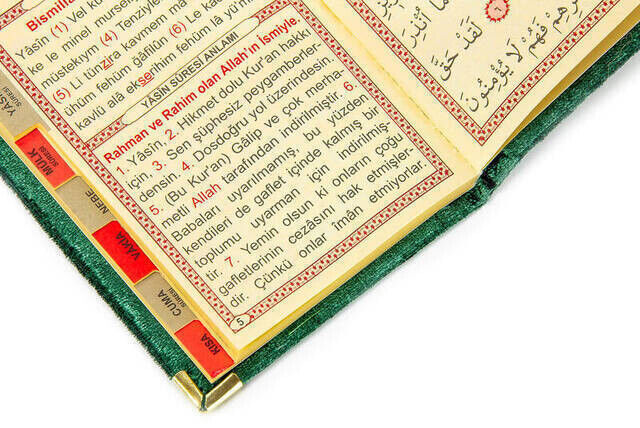 Bismilla
Yâsîn (1) Vel k
ke le minel mursel
müstekıym (4) Tenziyle
(5) Li tünzira kavmem mâ
ühüm fehüm ğâfilûn (6) Le ka
kavlü alâ ekserihim fehüm lâ yü'm
YÂSÎN SÛRESİ ANLAMI
Rahman ve Rahim olan Allah'ın İsmiyle.
1. Yâsîn, 2. Hikmet dolu Kur'an hakkı
için, 3. Sen şüphesiz peygamberler-
densin. 4. Dosdoğru yol üzerindesin.
5. (Bu Kur'an) Gâlip ve çok merha-
metli Allah tarafından indirilmiştir. 6.
Babaları uyarılmamış, bu yüzden
kendileri de gaflet içinde kalmış bir
toplumu uyarman için indirilmiş-
tir. 7. Yemin olsun ki onların çoğu
gafletlerinin cezâsını hak etmişler-
dir. Çünkü onlar îmân etmiyorlar.
5
YÂSİN
SÛRESİ
MÜLK
SÛRESİ
NEBE
VÂKIA
CUMA
SÛRESİ
KISA
لَقَدْ حَقَّ
فَهُمْ لَا يُؤْمِنُونَ